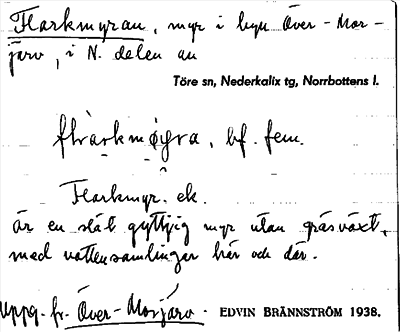 Flarkmyran, myr i byn Över-Mor-
järv, i N. delen av
Töre sn, Nederkalix tg, Norrbottens l.
flàrkmøyra, bf. fem.
Flarkmyr. ek.
är en slät gyttjig myr utan gräsväxt,
med vattensamlingar här och där.
Uppg. fr. Över-Morjärv. EDVIN BRÄNNSTRÖM 1938.